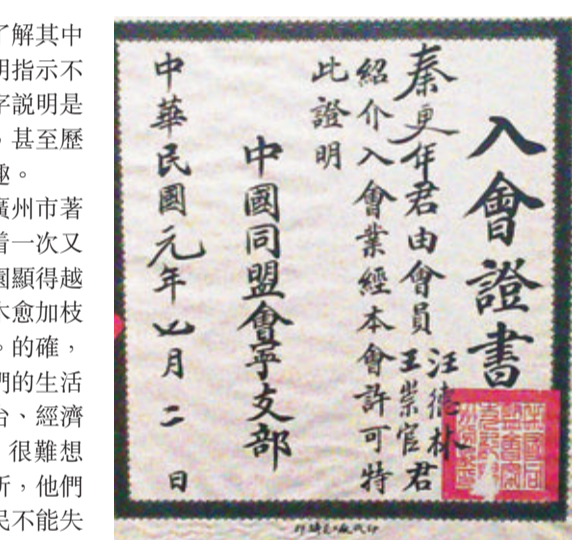 了解其中
明指示不
字説明是
，甚至歷
趣。
廣州市著
着一次又
園顯得越
木愈加枝
。的確，
們的生活
台、經濟
很難想
所，他們
民不能失
入會證書
秦更年君由會員汪德林王崇官君
紹介入會業經本會許可特
此證明
中國同盟會寧支部
中華民國元年七月二日